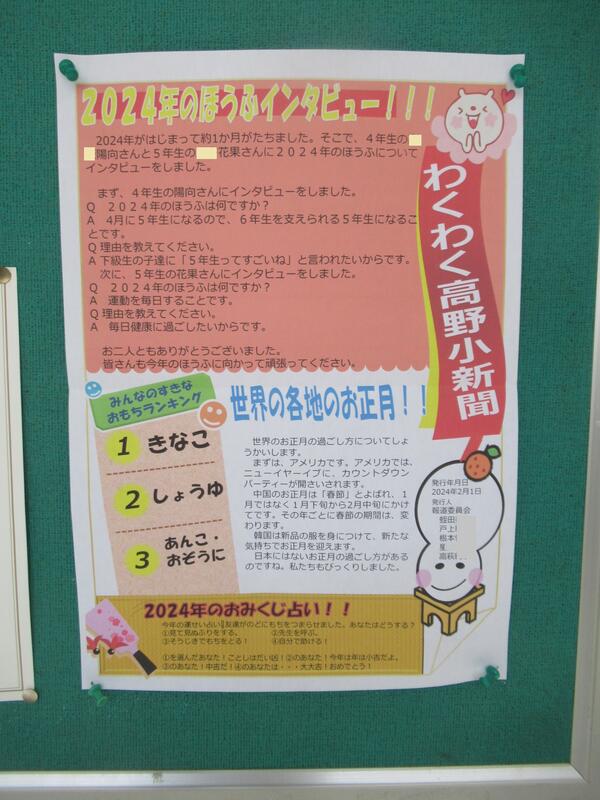 2024年のほうふインタビュー!!!
わくわく高野小新聞
2024年がはじまって約1か月がたちました。そこで、4年生の
陽向さんと5年生の 花果さんに2024年のほうふについて
インタビューをしました。
まず、4年生の陽向さんにインタビューをしました。
Q 2024年のほうふは何ですか?
A 4月に5年生になるので、6年生を支えられる5年生になるこ
とです。
Q 理由を教えてください。
A 下級生の子達に「5年生ってすごいね」と言われたいからです。
次に、5年生の花果さんにインタビューをしました。
Q 2024年のほうふは何ですか?
A 運動を毎日することです。
Q 理由を教えてください。
A 毎日健康に過ごしたいからです。
お二人ともありがとうございました。
皆さんも今年のほうふに向かって頑張ってください。
みんなのすきな
おもちランキング
1 きなこ
2 しょうゆ
3 あんこ・
おぞうに
世界の各地のお正月!!
世界のお正月の過ごし方についてしょ
うかいします。
まずは、アメリカです。アメリカでは、
ニューイヤーイブに、カウントダウン
パーティーが開さいされます。
中国のお正月は「春節」とよばれ、1
月ではなく1月下旬から2月中旬にかけ
てです。その年ごとに春節の期間は、変
わります。
韓国は新品の服を身につけて、新たな
気持ちでお正月を迎えます。
日本にはないお正月の過ごし方がある
のですね。私たちもびっくりしました。
発行年月日
2024年2月1日
発行人
報道委員会
蛭田
戸上
根本
星
高萩
2024年のおみくじ占い!!
今年の運せい占い!友達がのどにもちをつまらせました。あなたはどうする?
①見て見ぬふりをする。 ②先生を呼ぶ。
③そうじきでもちをとる! ④自分で助ける!
①を選んだあなた!ことしはだい凶!②のあなた!今年は年は小吉だよ。
③のあなた!中吉だ!④のあなたは・・・大大吉!おめでとう!